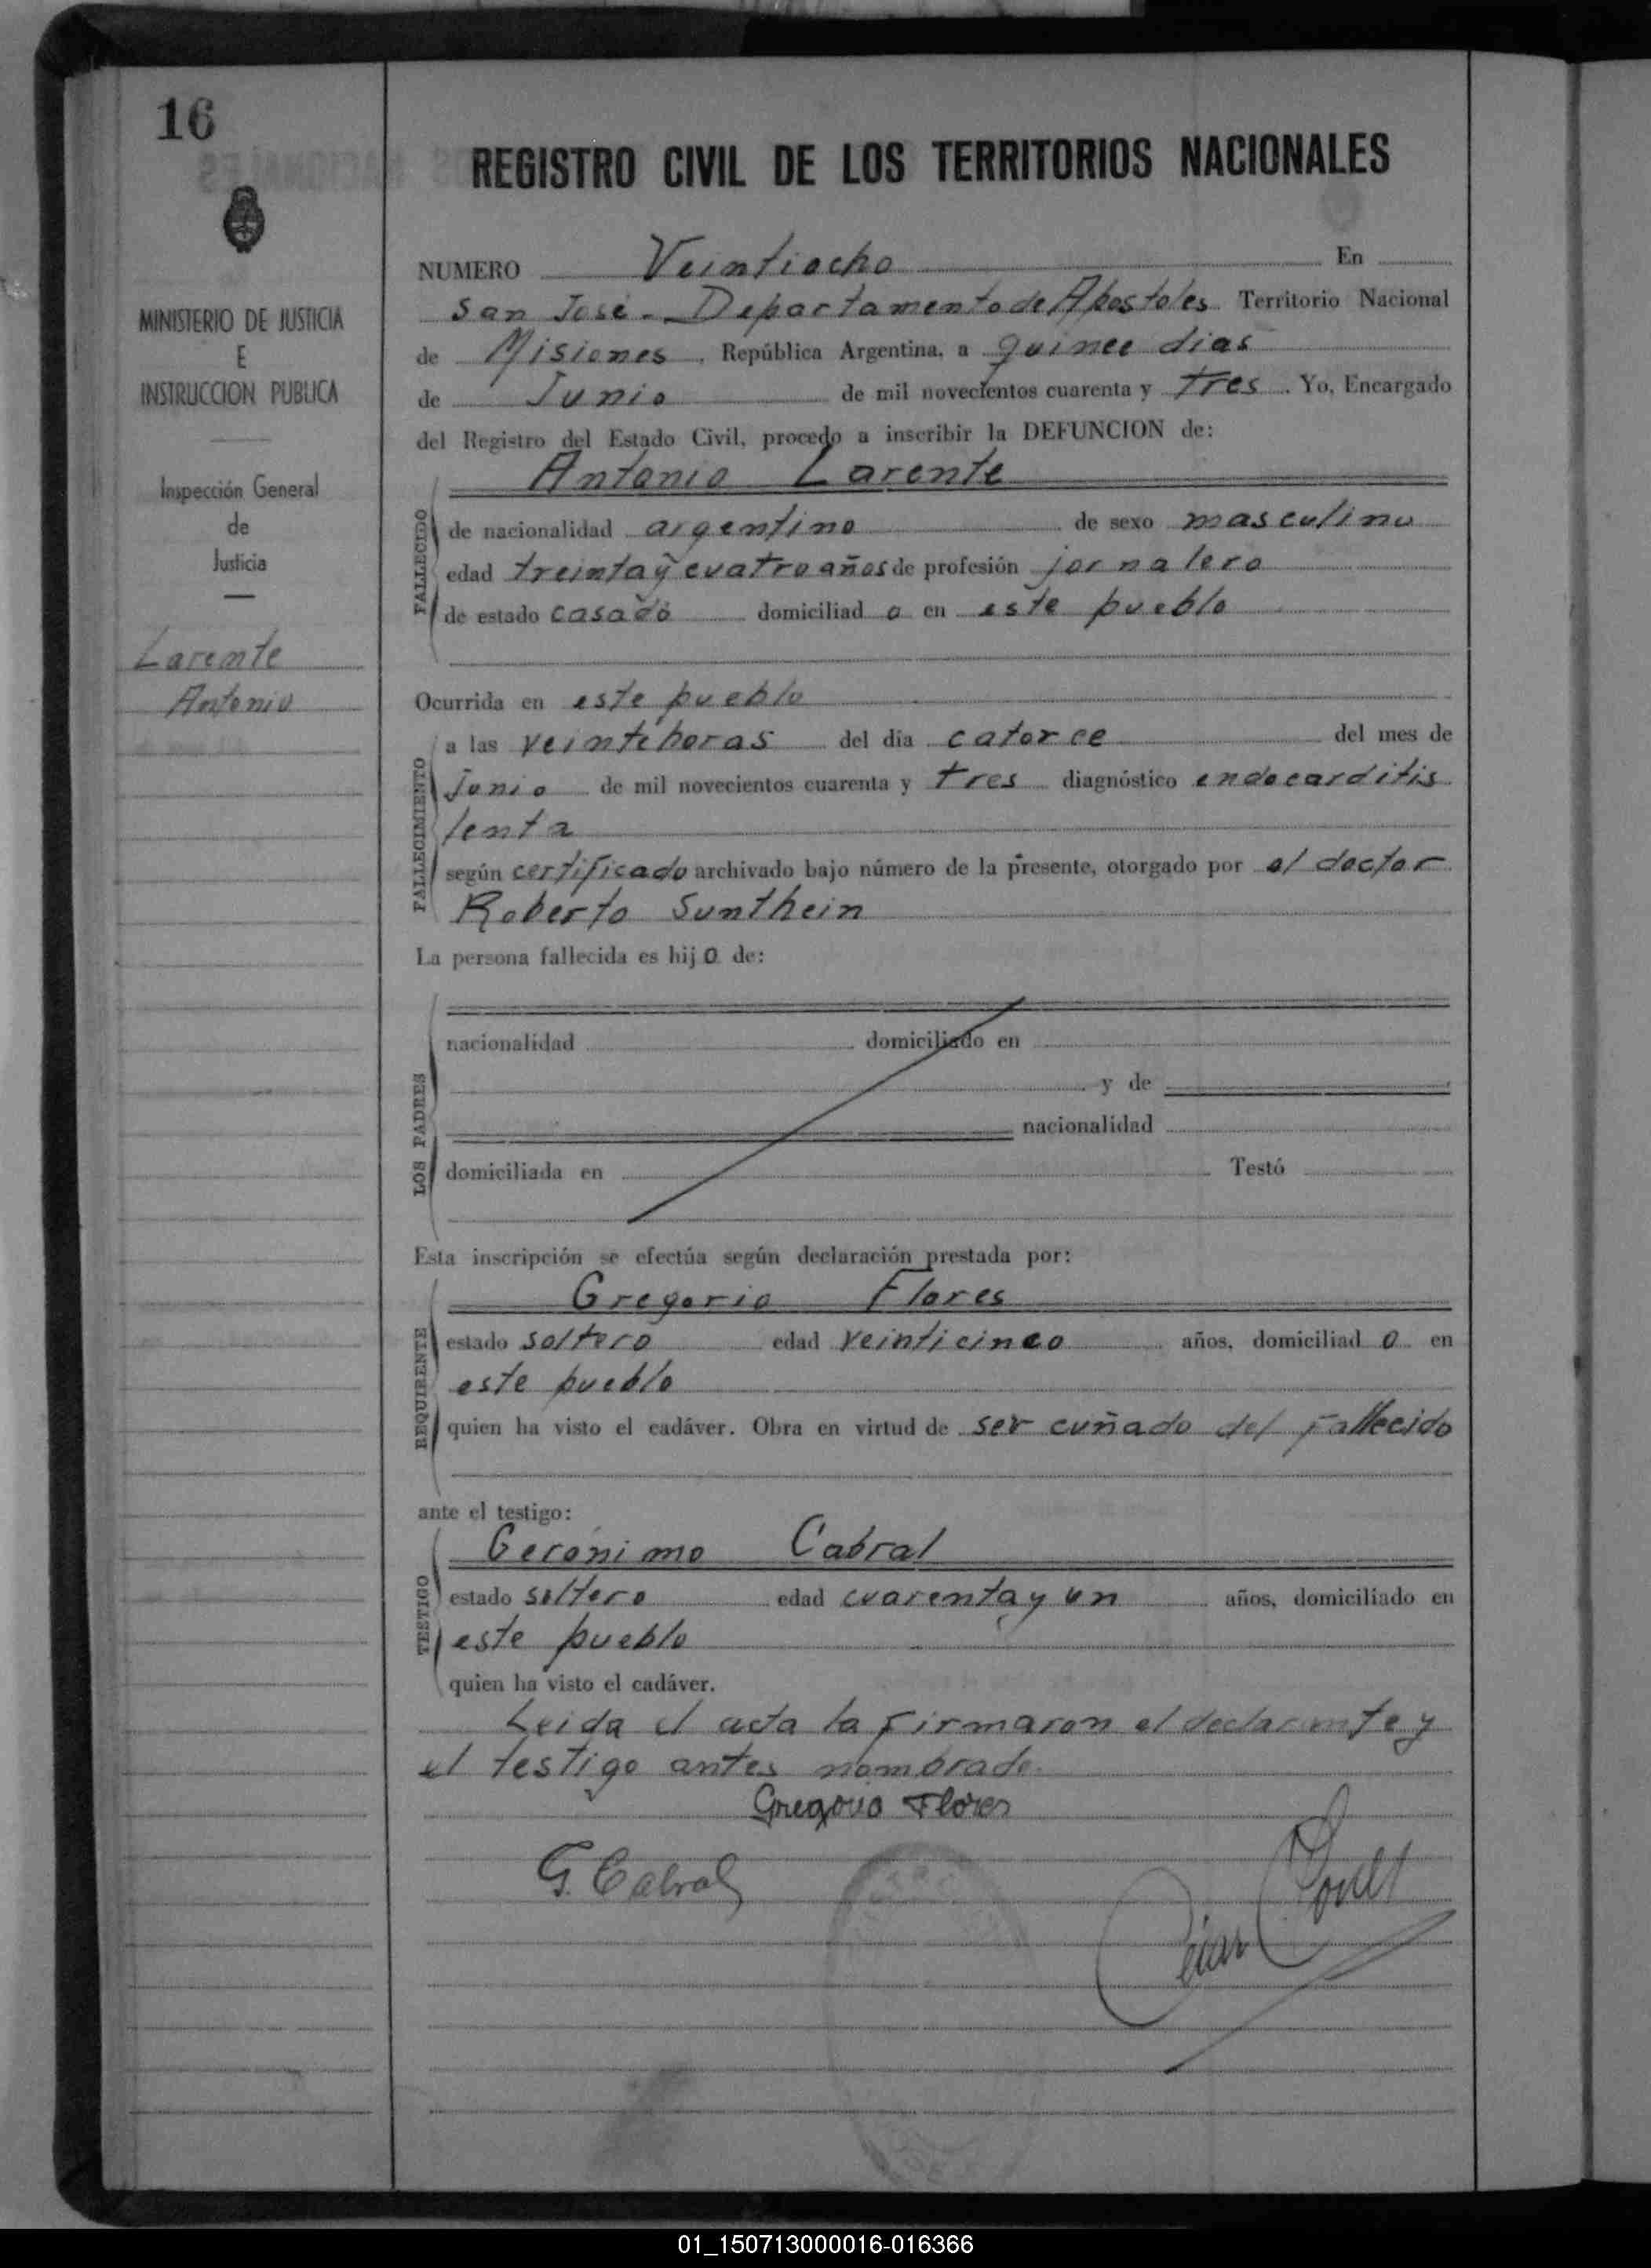 16
REGISTRO CIVIL DE LOS TERRITORIOS NACIONALES
MINISTERIO DE JUSTICIA
E
INSTRUCCION PUBLICA
Inspección General
de
Justicia
Larente
Antonio
NUMERO Veintiocho En
San José - Departamento de Apostoles Territorio Nacional
de Misiones, República Argentina, a quince dias
de Junio de mil novecientos cuarenta y tres. Yo, Encargado
del Registro del Estado Civil, procedo a inscribir la DEFUNCION de:
Antonio Larente
FALLECIDO
de nacionalidad argentino de sexo masculino
edad treinta y cuatro años de profesión jornalero
de estado casado domiciliad o en este pueblo
Ocurrida en este pueblo
FALLECIMIENTO
a las veinte horas del día catorce del mes de
junio de mil novecientos cuarenta y tres diagnóstico endocarditis
lenta
según certificado archivado bajo número de la presente, otorgado por el doctor
Roberto Sunthein
La persona fallecida es hij o de:
LOS PADRES
nacionalidad domiciliado en
y de
nacionalidad
domiciliada en Testó
Esta inscripción se efectúa según declaración prestada por:
Gregorio Flores
REQUIRENTE
estado soltero edad veinticinco años, domiciliad o en
este pueblo
quien ha visto el cadáver. Obra en virtud de ser cuñado del fallecido
ante el testigo:
Gerónimo Cabral
TESTIGO
estado soltero edad cuarenta y un años, domiciliado en
este pueblo
quien ha visto el cadáver.
Leida el acta la firmaron el declarante y
el testigo antes nombrado.
Gregorio Flores
G. Cabral
01_150713000016-016366